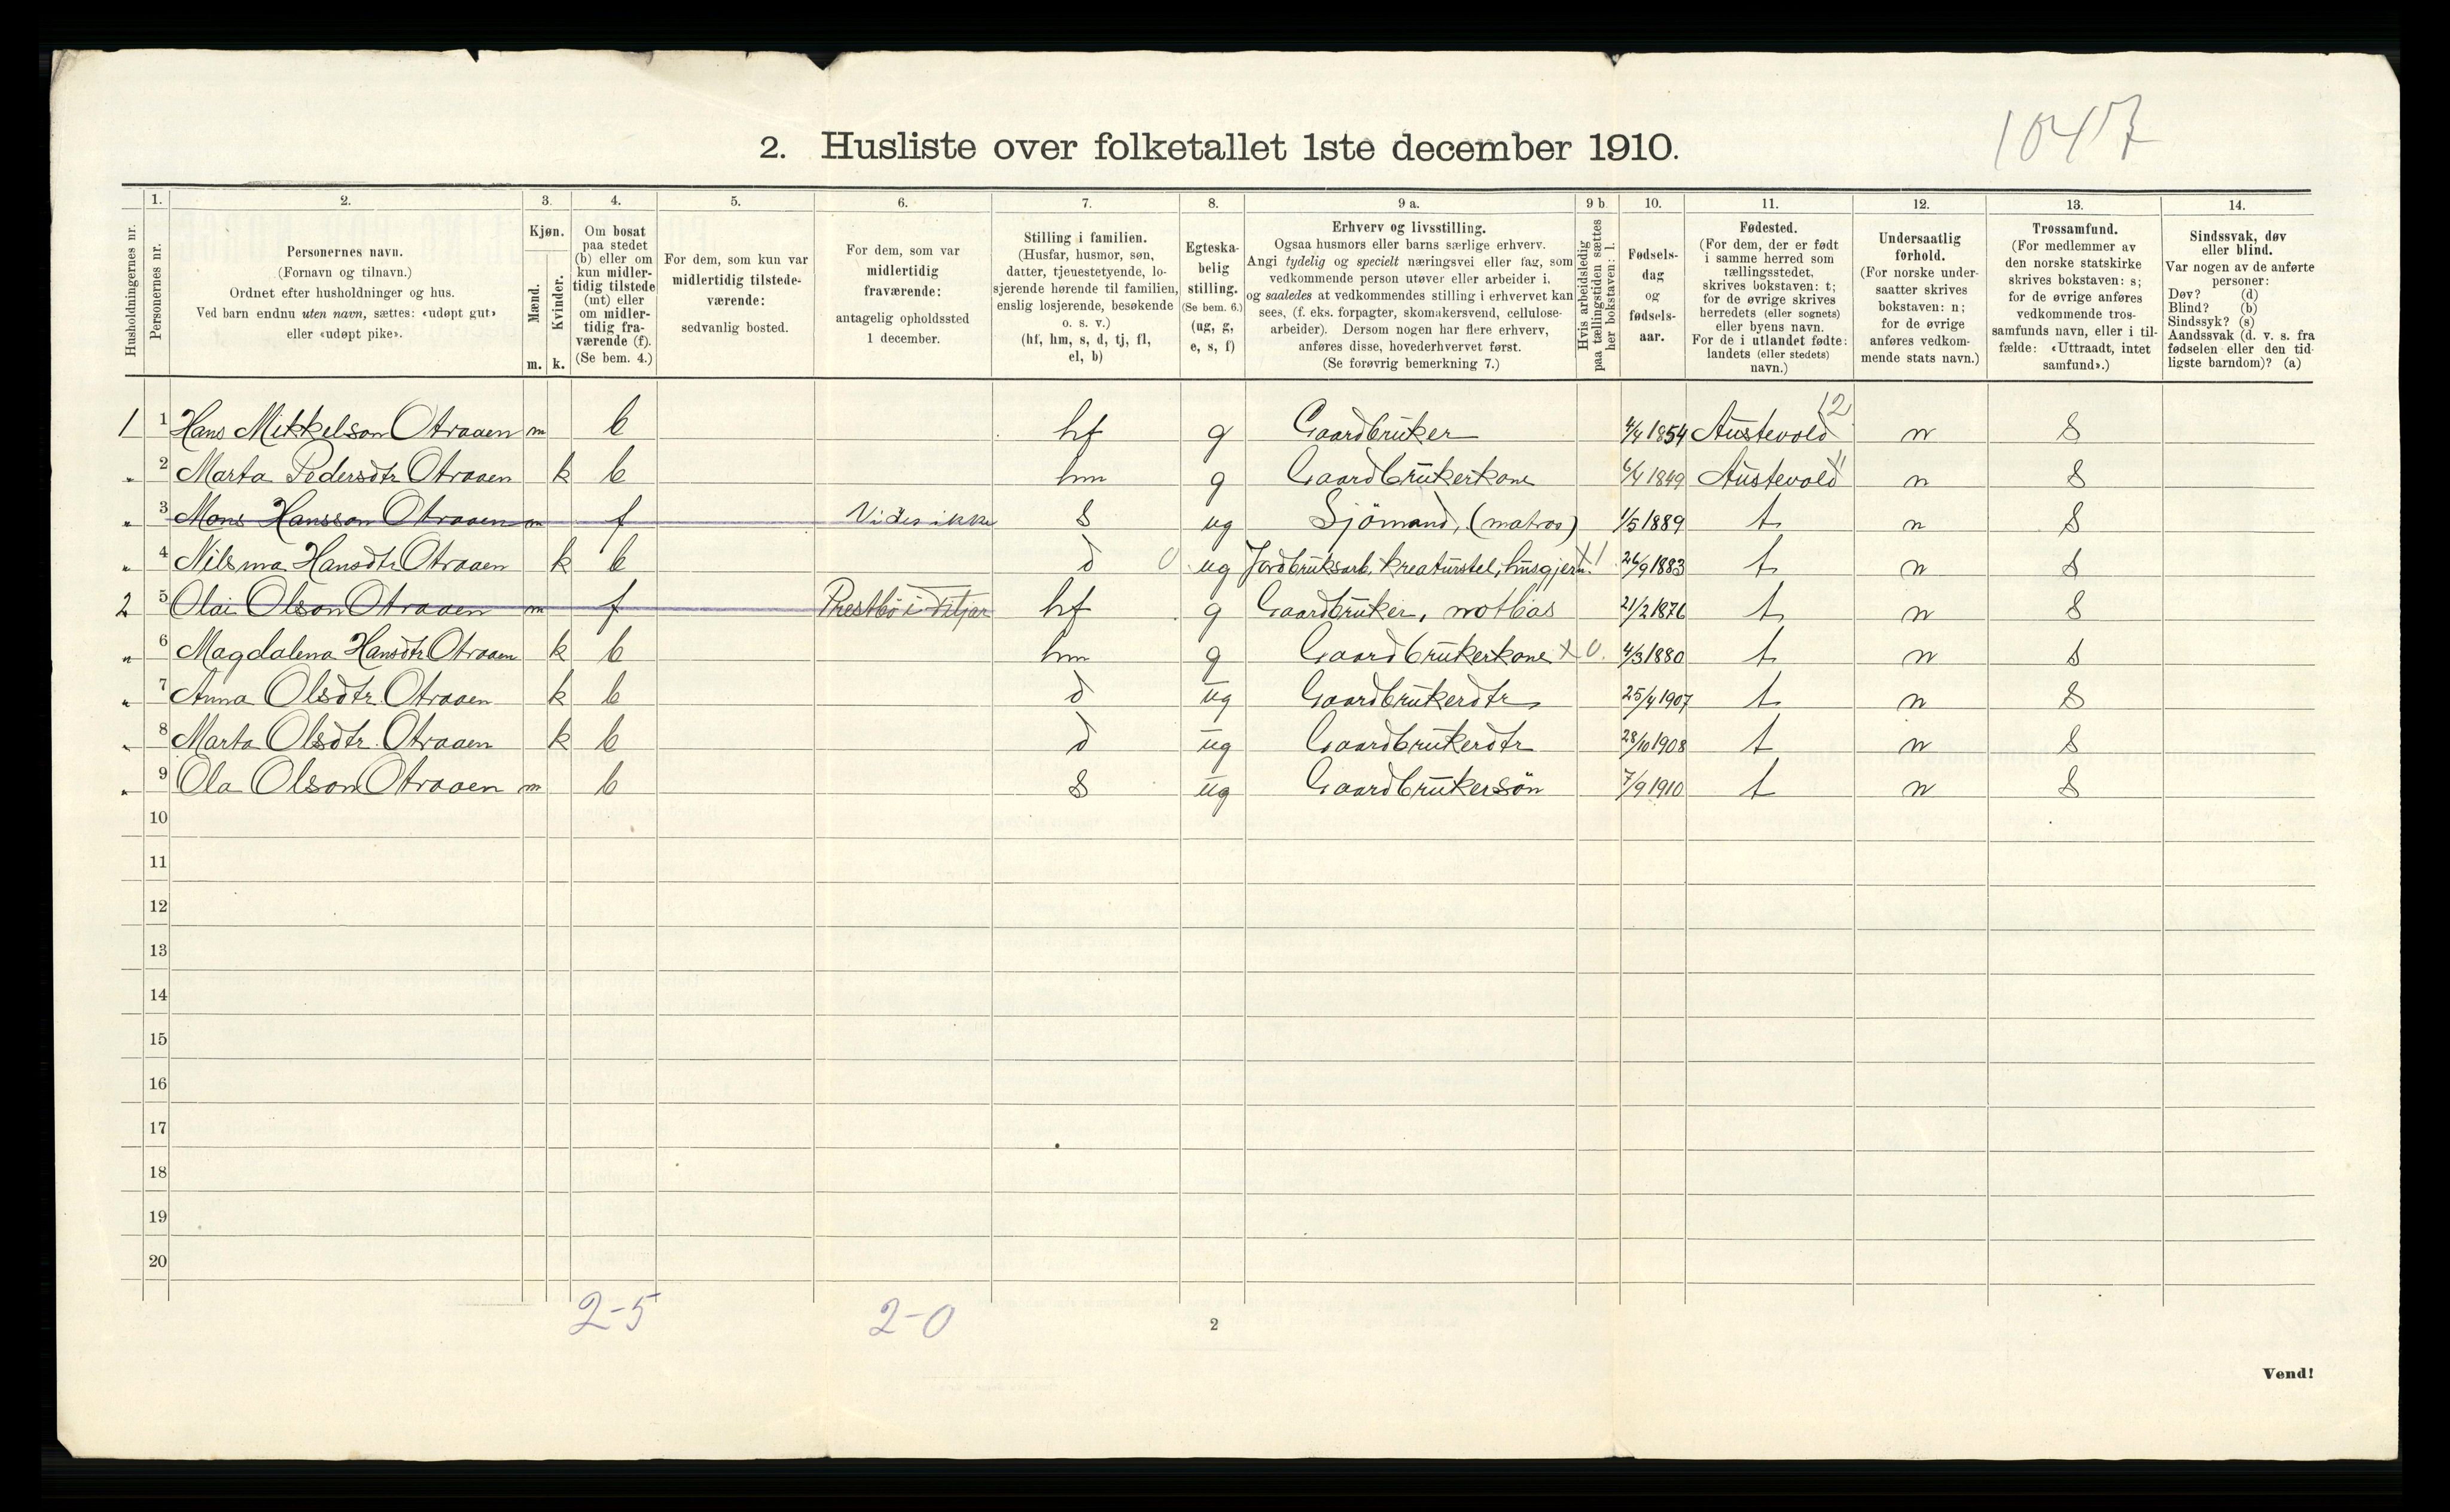 1047
2. Husliste over folketallet 1ste december 1910.
Husholdningernes nr.
1. Personernes nr.
2. Personernes navn. (Fornavn og tilnavn.) Ordnet efter husholdninger og hus. Ved barn endnu uten navn, sættes: «udøpt gut» eller «udøpt pike».
3. Kjøn. Mænd. m. Kvinder. k.
4. Om bosat paa stedet (b) eller om kun midlertidig tilstede (mt) eller om midlertidig fraværende (f). (Se bem. 4.)
5. For dem, som kun var midlertidig tilstedeværende: sedvanlig bosted.
6. For dem, som var midlertidig fraværende: antagelig opholdssted 1 december.
7. Stilling i familien. (Husfar, husmor, søn, datter, tjenestetyende, losjerende hørende til familien, enslig losjerende, besøkende o. s. v.) (hf, hm, s, d, tj, fl, el, b)
8. Egteskabelig stilling. (Se bem. 6.) (ug, g, e, s, f)
9 a. Erhverv og livsstilling. Ogsaa husmors eller barns særlige erhverv. Angi tydelig og specielt næringsvei eller fag, som vedkommende person utøver eller arbeider i, og saaledes at vedkommendes stilling i erhvervet kan sees, (f. eks. forpagter, skomakersvend, cellulosearbeider). Dersom nogen har flere erhverv, anføres disse, hovederhvervet først. (Se forøvrig bemerkning 7.)
9 b. Hvis arbeidsledig paa tællingstiden sættes her bokstaven: l.
10. Fødselsdag og fødselsaar.
11. Fødested. (For dem, der er født i samme herred som tællingsstedet, skrives bokstaven: t; for de øvrige skrives herredets (eller sognets) eller byens navn. For de i utlandet fødte: landets (eller stedets) navn.)
12. Undersaatlig forhold. (For norske undersaatter skrives bokstaven: n; for de øvrige anføres vedkommende stats navn.)
13. Trossamfund. (For medlemmer av den norske statskirke skrives bokstaven: s; for de øvrige anføres vedkommende trossamfunds navn, eller i tilfælde: «Uttraadt, intet samfund».)
14. Sindssvak, døv eller blind. Var nogen av de anførte personer: Døv? (d) Blind? (b) Sindssyk? (s) Aandssvak (d. v. s. fra fødselen eller den tidligste barndom)? (a)
1 1 Hans Mikkelson Otraaen m b hf g Gaardbruker 4/4 1854 Austevold 12 n s
" 2 Marta Pedersdtr Otraaen k b hm g Gaardbrukerkone 6/4 1849 Austevold " n s
" 3 Mons Hansson Otraaen m f Vides ikke s ug Sjömand, (matros) 1/5 1889 t n s
" 4 Nilsina Hansdtr Otraaen k b d 0 ug Jordbruksarb, kreaturstel, husgjern. 26/9 1883 t n s
2 5 Olai Olson Otraaen m f Prestbö i Fitjar hf g Gaardbruker, notbas 21/2 1876 t n s
" 6 Magdalena Hansdtr Otraaen k b hm g Gaardbrukerkone x 0. 4/3 1880 t n s
" 7 Anna Olsdtr. Otraaen k b d ug Gaardbrukerdtr 25/4 1907 t n s
" 8 Marta Olsdtr. Otraaen k b d ug Gaardbrukerdtr 28/10 1908 t n s
" 9 Ola Olson Otraaen m b s ug Gaardbrukersön 7/9 1910 t n s
10
11
12
13
14
15
16
17
18
19
20
2-5 2-0
2
Vend!